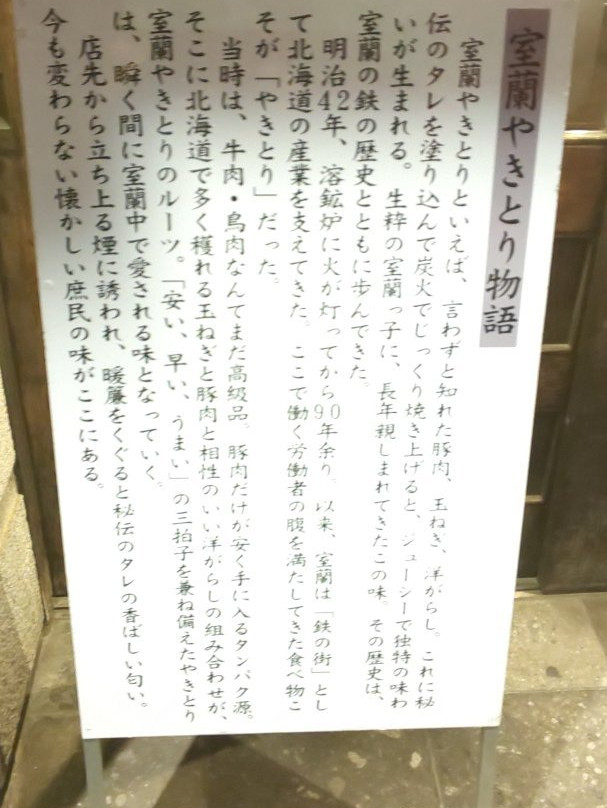 室蘭やきとり物語
室蘭やきとりといえば、言わずと知れた豚肉、玉ねぎ、洋がらし。これに秘
伝のタレを塗り込んで炭火でじっくり焼き上げると、ジューシーで独特の味わ
いが生まれる。生粋の室蘭っ子に、長年親しまれてきたこの味。その歴史は、
室蘭の鉄の歴史とともに歩んできた。
明治42年、溶鉱炉に火が灯ってから90年余り。以来、室蘭は「鉄の街」とし
て北海道の産業を支えてきた。ここで働く労働者の腹を満たしてきた食べ物こ
そが「やきとり」だった。
当時は、牛肉・鳥肉なんてまだ高級品。豚肉だけが安く手に入るタンパク源。
そこに北海道で多く穫れる玉ねぎと豚肉と相性のいい洋がらしの組み合わせが、
室蘭やきとりのルーツ。「安い、早い、うまい」の三拍子を兼ね備えたやきとり
は、瞬く間に室蘭中で愛される味となっていく。
店先から立ち上る煙に誘われ、暖簾をくぐると秘伝のタレの香ばしい匂い。
今も変わらない懐かしい庶民の味がここにある。